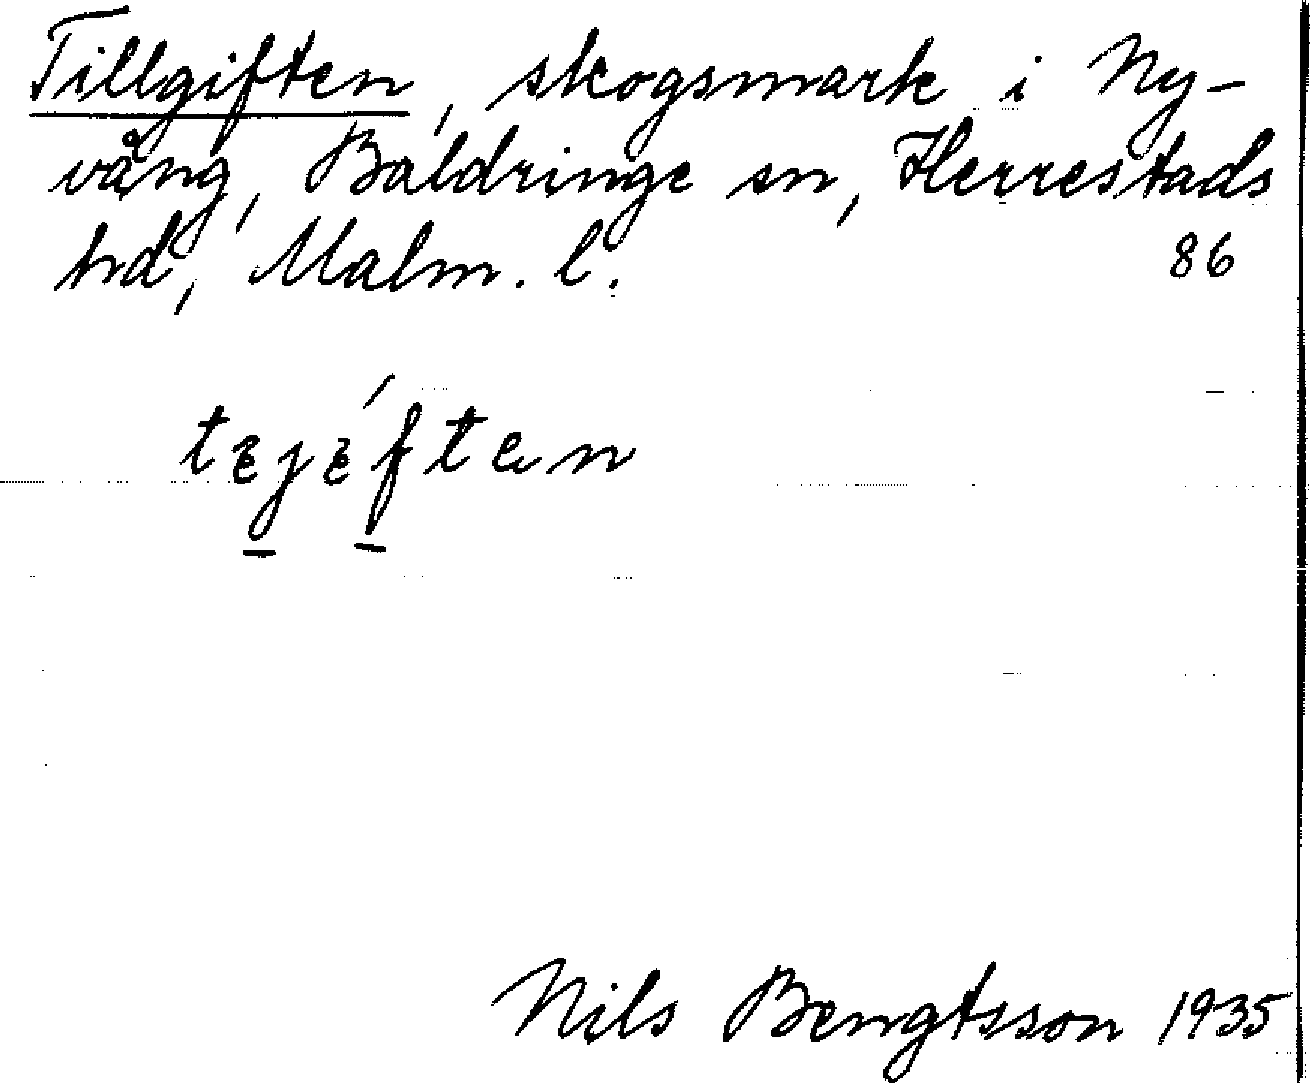 Tillgiften, skogsmark i Ny-
vång, Baldringe sn, Herrestads
hd, Malm. l. 86
Nils Bengtsson 1935